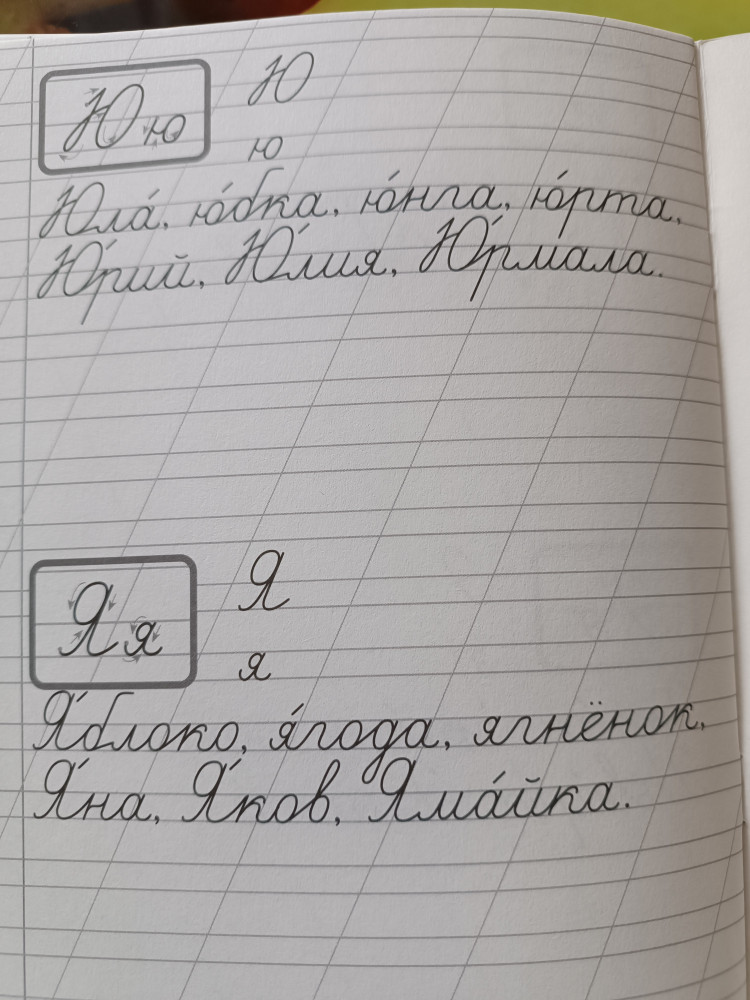 Юю Ю
ю
Юла́, ю́бка, ю́нга, ю́рта,
Ю́рий, Ю́лия, Ю́рмала.
Яя Я
я
Я́блоко, я́года, ягнёнок,
Я́на, Я́ков, Яма́йка.